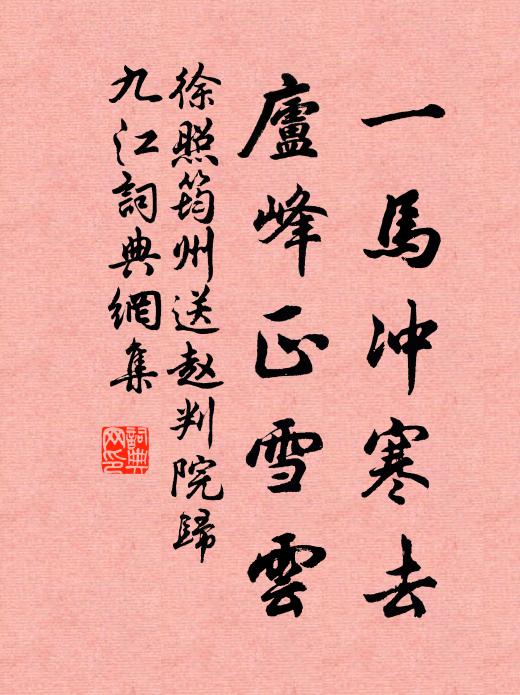 一馬冲寒去
廬峰正雪雲
徐照筠州送赵判院歸
九江詞典網集
詞典
网印